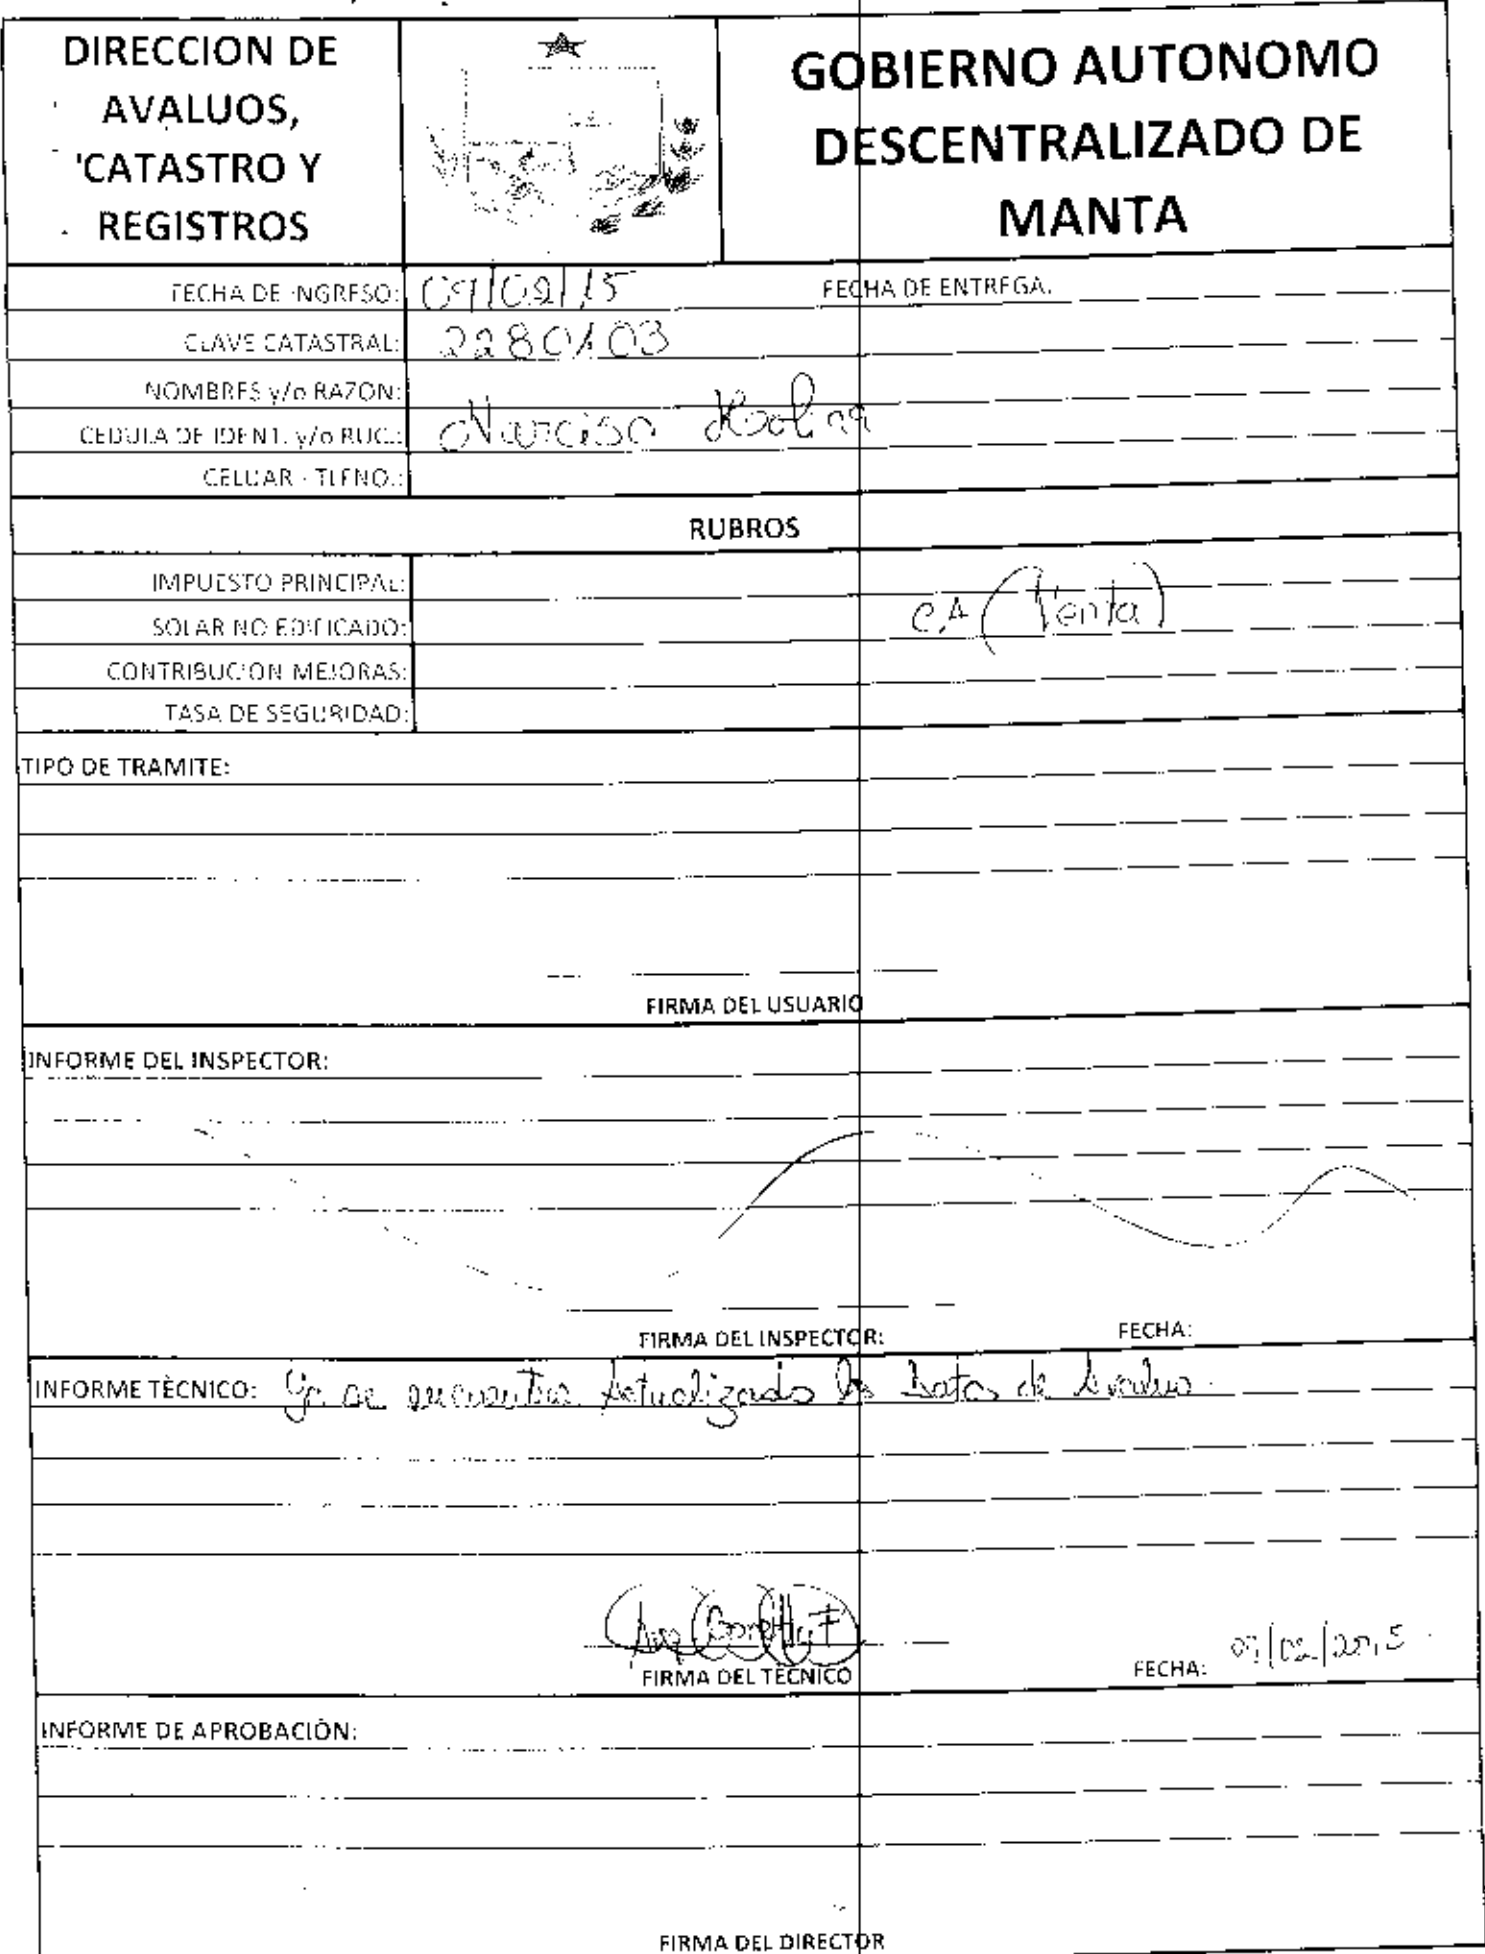 DIRECCION DE
AVALUOS,
CATASTRO Y
REGISTROS
GOBIERNO AUTONOMO
DESCENTRALIZADO DE
MANTA
FECHA DE INGRESO: 09/02/15 FECHA DE ENTREGA:
CLAVE CATASTRAL: 2280103
NOMBRES y/o RAZON:
CEDULA DE IDENT. y/o RUC.: Narcisa
CELUAR - TLFNO.:
RUBROS
IMPUESTO PRINCIPAL:
SOLAR NO EDIFICADO: C.A (Venta)
CONTRIBUCION MEJORAS:
TASA DE SEGURIDAD:
TIPO DE TRAMITE:
FIRMA DEL USUARIO
INFORME DEL INSPECTOR:
FIRMA DEL INSPECTOR: FECHA:
INFORME TÈCNICO: Ya se encuentra Actualizado los Datos de Avaluo.
FIRMA DEL TECNICO FECHA: 09/02/2015
INFORME DE APROBACIÓN:
FIRMA DEL DIRECTOR